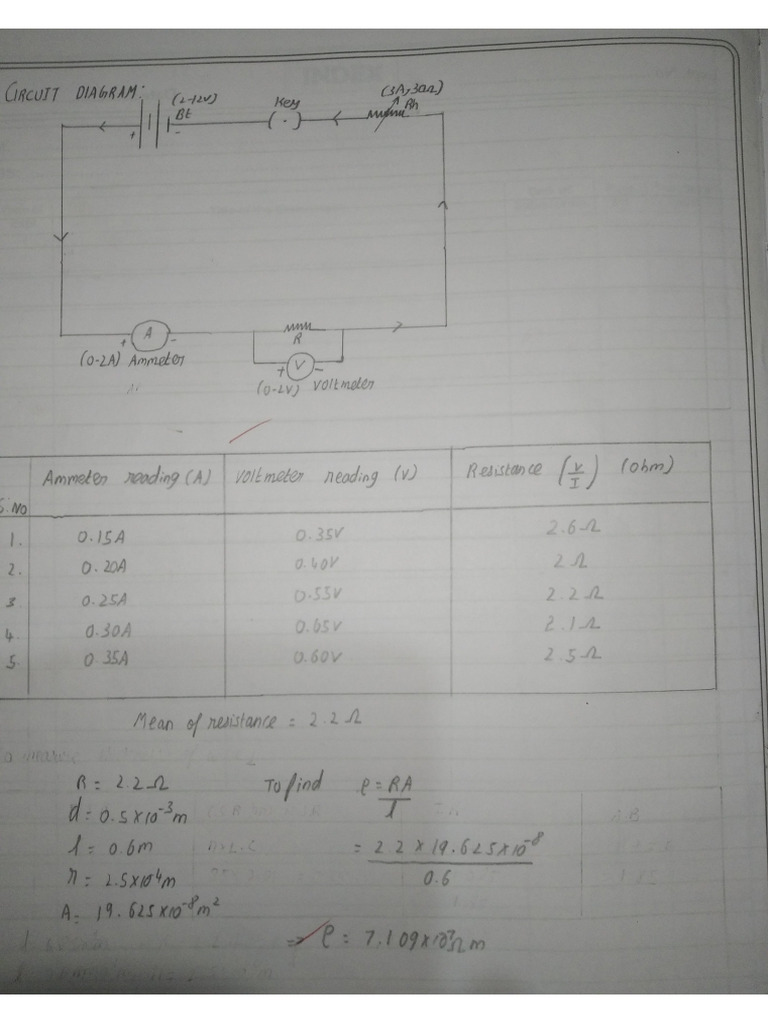 CIRCUIT DIAGRAM:
(2-12V)
Bt
+ -
Key
(.)
(3A, 30Ω)
Rh
A
+ -
(0-2A) Ammeter
R
V
+ -
(0-2V) Voltmeter
S.No Ammeter reading (A) Voltmeter reading (V) Resistance (V/I) (ohm)
1. 0.15A 0.35V 2.6Ω
2. 0.20A 0.40V 2Ω
3 0.25A 0.55V 2.2Ω
4. 0.30A 0.65V 2.1Ω
5. 0.35A 0.60V 2.5Ω
Mean of resistance = 2.2Ω
R = 2.2Ω To find ρ = RA/l
d = 0.5×10⁻³m
l = 0.6m = 2.2×19.625×10⁻⁸/0.6
r = 2.5×10⁴m
A = 19.625×10⁻⁸m²
⇒ ρ = 7.109×10⁻⁷Ωm